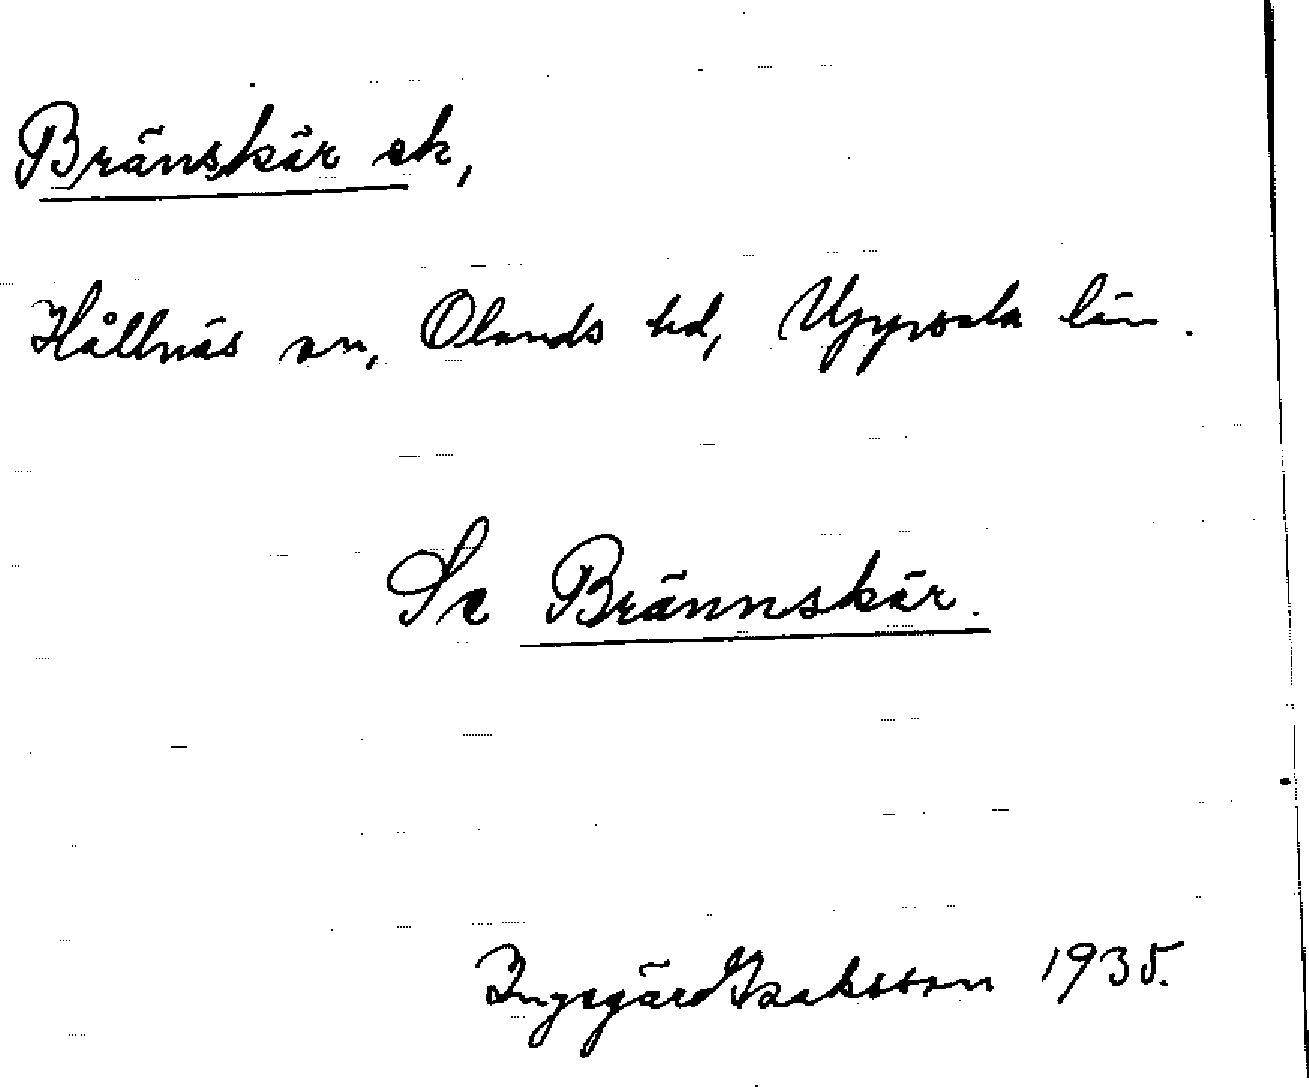 Bränskär sk,
Hållnäs sn, Olands hd, Uppsala län.
Se Brännskär.
Ingegärd Isaksson 1935.